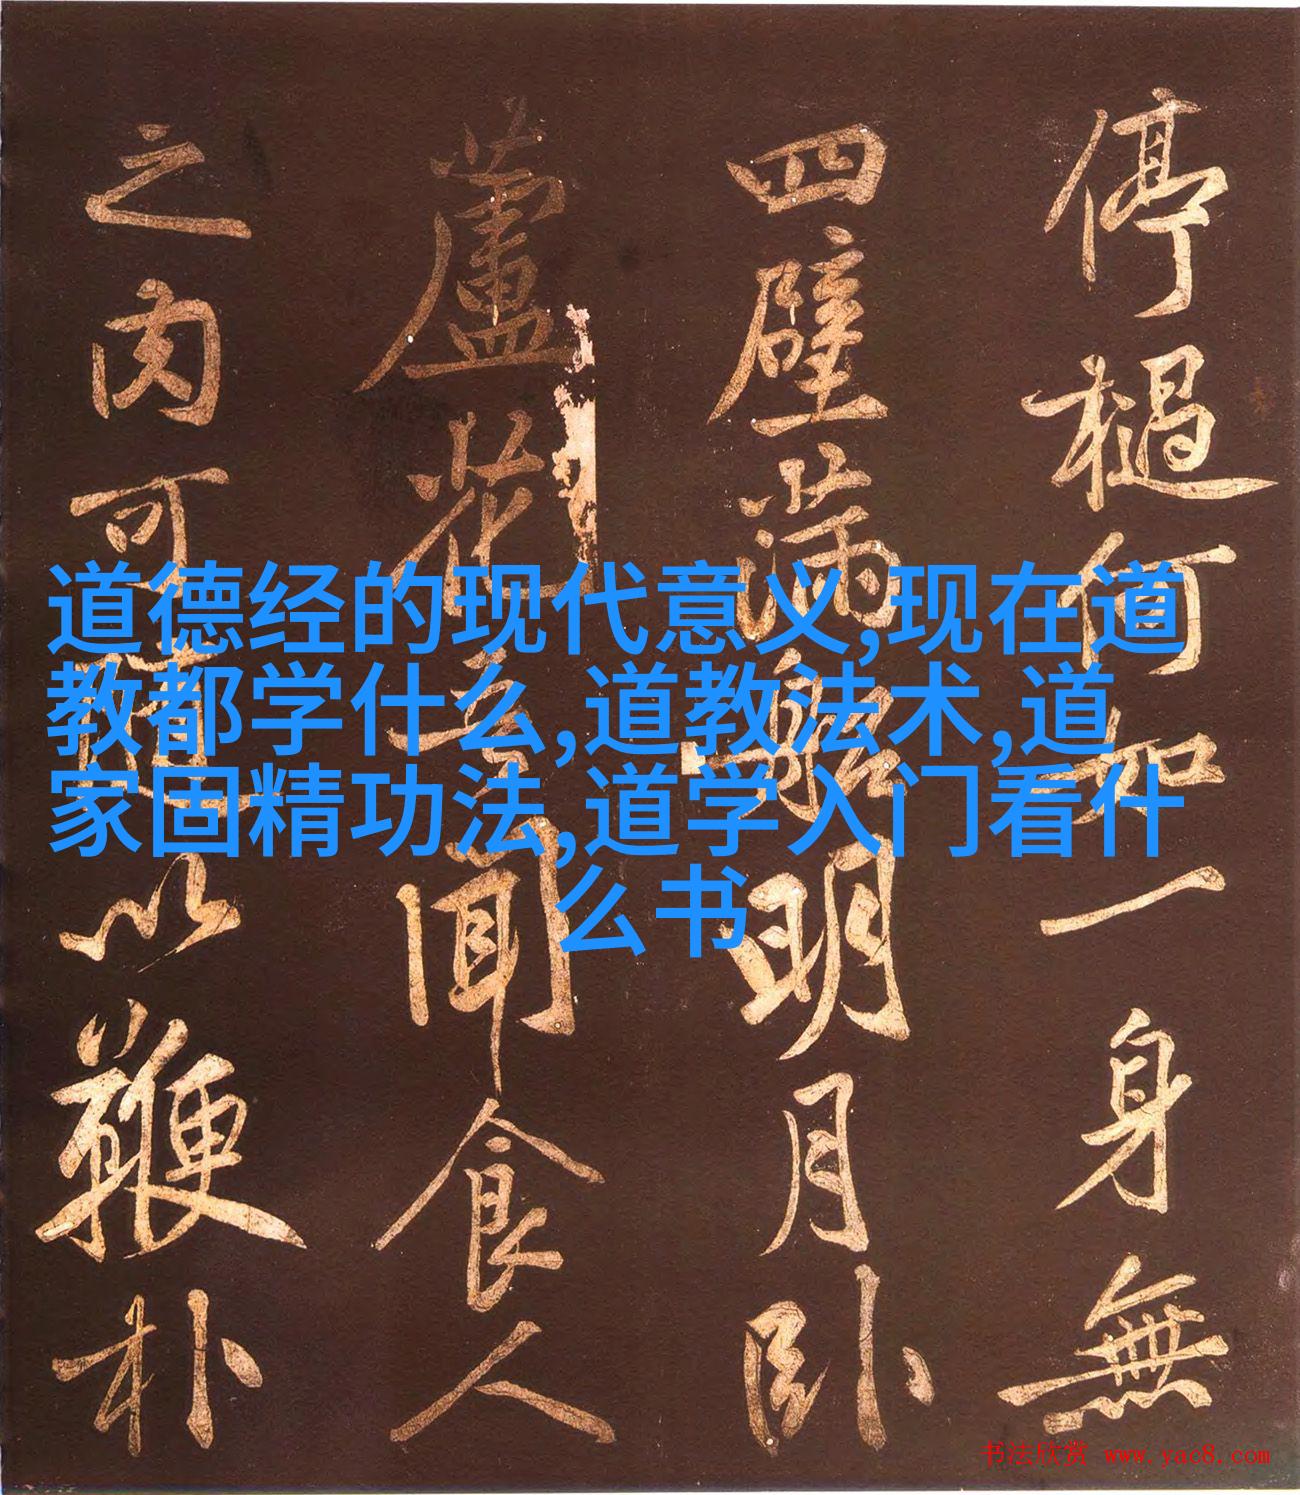 停檛何如一身無
四壁滿船明月臥
蘆花吾聞食人
之肉可隨以鞭朴
道德经的现代意义,现在道
教都学什么,道教法术,道
家固精功法,道学入门看什
么书
书法欣赏 www.yac8.com